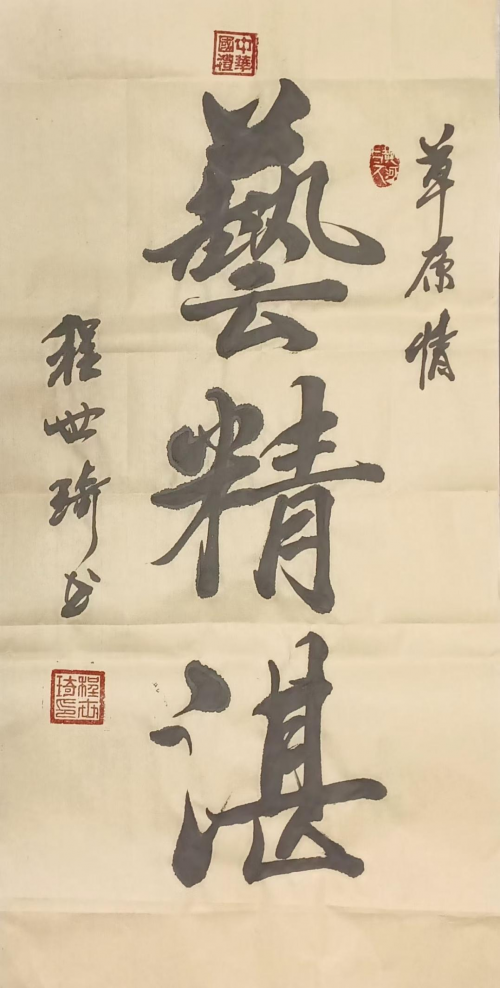 草原情
中華國禮
藝精湛
程世琦书
程世琦印